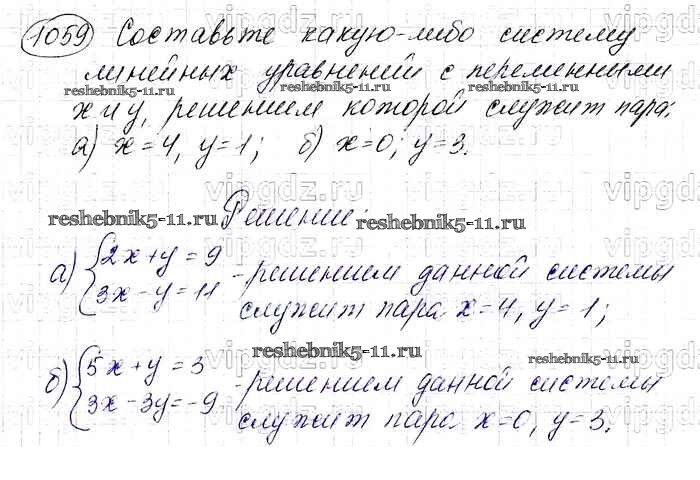 1059 Составьте какую-либо систему
линейных уравнений с переменными
reshebnik5-11.ru reshebnik5-11.ru
х и у, решением которой служит пара:
а) x=4, y=1; б) x=0; y=3.
vipgdz.ru
Решение:
reshebnik5-11.ru reshebnik5-11.ru
а) {2x+y=9
3x-y=11 - решением данной системы
служит пара x=4, y=1;
reshebnik5-11.ru reshebnik5-11.ru
б) {5x+y=3
3x-3y=-9 - решением данной системы
служит пара x=0, y=3.